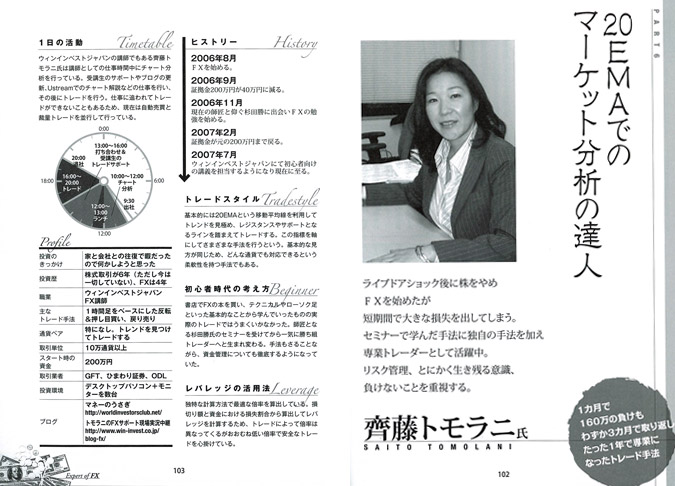 PART6
20EMAでの
マーケット分析の達人
ライブドアショック後に株をやめ
FXを始めたが
短期間で大きな損失を出してしまう。
セミナーで学んだ手法に独自の手法を加え
専業トレーダーとして活躍中。
リスク管理、とにかく生き残る意識、
負けないことを重視する。
齊藤トモラニ氏
SAITO TOMOLANI
1カ月で
160万の負けも
わずか3カ月で取り返し
たった1年で専業に
なったトレード手法
102
1日の活動 Timetable
ウィンインベストジャパンの講師でもある齊藤ト
モラニ氏は講師としての仕事時間中にチャート分
析を行っている。受講生のサポートやブログの更
新、Ustreamでのチャート解説などの仕事を行い、
その後にトレードを行う。仕事に追われてトレー
ドができないこともあるため、現在は自動売買と
裁量トレードを並行して行っている。
0:00
6:00
12:00
18:00
13:00〜16:00
打ち合わせ&
受講生の
トレードサポート
10:00〜12:00
チャート
分析
9:30
出社
12:00〜
13:00
ランチ
16:00〜
20:00
トレード
20:00
退社
Profile
投資の
きっかけ
家と会社との往復で暇だった
ので何かしようと思った
投資歴
株式取引が6年(ただし今は
一切していない)、FXは4年
職業
ウィンインベストジャパン
FX講師
主な
トレード手法
1時間足をベースにした反転
&押し目買い、戻り売り
通貨ペア
特になし、トレンドを見つけ
てトレードする
取引単位
10万通貨以上
スタート時の
資金
200万円
取引業者
GFT、ひまわり証券、ODL
投資環境
デスクトップパソコン+モニ
ターを数台
ブログ
マネーのうさぎ
http://worldinvestorsclub.net/
トモラニのFXサポート現場実況中継
http://www.win-invest.co.jp/
blog-fx/
Expert of FX
ヒストリー History
2006年8月
FXを始める。
2006年9月
証拠金200万円が40万円に減る。
2006年11月
現在の師匠と仰ぐ杉田勝に出会いFXの勉
強を始める。
2007年2月
証拠金が元の200万円まで戻る。
2007年7月
ウィンインベストジャパンにて初心者向け
の講義を担当するようになり現在に至る。
トレードスタイル Tradestyle
基本的には20EMAという移動平均線を利用して
トレンドを見極め、レジスタンスやサポートとな
るラインを踏まえてトレードする。この指標を軸
にしてさまざまな手法を行うという。基本的な見
方が同じため、どんな通貨でも対応できるという
柔軟性を持つ手法でもある。
初心者時代の考え方 Beginner
書店でFXの本を買い、テクニカルやローソク足
といった基本的なことから学んでいったものの実
際のトレードではうまくいかなかった。師匠とな
る杉田勝氏のセミナーを受けてから一気に勝ち組
トレーダーへと生まれ変わる。手法もさることな
がら、資金管理についても徹底するようになって
いた。
レバレッジの活用法 Leverage
独特な計算方法で最適な倍率を算出している。損
切り額と資金における損失割合から算出してレバ
レッジを計算するため、トレードによって倍率は
異なってくるがおおむね低い倍率で安全なトレー
ドを心掛けている。
103